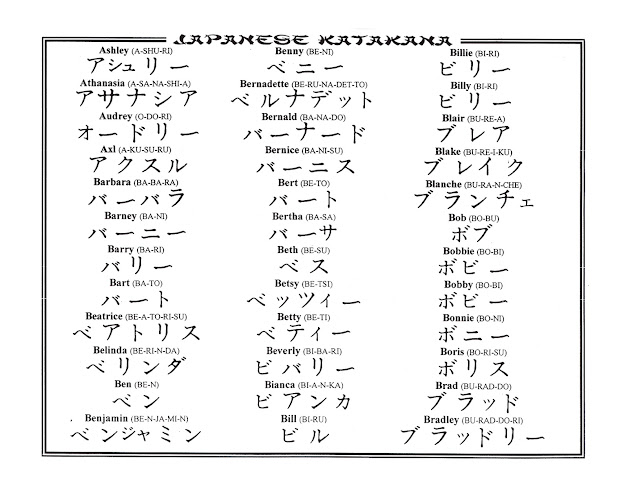 JAPANESE KATAKANA
Ashley (A-SHU-RI)
アシュリー
Athanasia (A-SA-NA-SHI-A)
アサナシア
Audrey (O-DO-RI)
オードリー
Axl (A-KU-SU-RU)
アクスル
Barbara (BA-BA-RA)
バーバラ
Barney (BA-NI)
バーニー
Barry (BA-RI)
バリー
Bart (BA-TO)
バート
Beatrice (BE-A-TO-RI-SU)
ベアトリス
Belinda (BE-RI-N-DA)
ベリンダ
Ben (BE-N)
ベン
Benjamin (BE-N-JA-MI-N)
ベンジャミン
Benny (BE-NI)
ベニー
Bernadette (BE-RU-NA-DET-TO)
ベルナデット
Bernald (BA-NA-DO)
バーナード
Bernice (BA-NI-SU)
バーニス
Bert (BE-TO)
バート
Bertha (BA-SA)
バーサ
Beth (BE-SU)
ベス
Betsy (BE-TSI)
ベッツィー
Betty (BE-TI)
ベティー
Beverly (BI-BA-RI)
ビバリー
Bianca (BI-A-N-KA)
ビアンカ
Bill (BI-RU)
ビル
Billie (BI-RI)
ビリー
Billy (BI-RI)
ビリー
Blair (BU-RE-A)
ブレア
Blake (BU-RE-I-KU)
ブレイク
Blanche (BU-RA-N-CHE)
ブランチェ
Bob (BO-BU)
ボブ
Bobbie (BO-BI)
ボビー
Bobby (BO-BI)
ボビー
Bonnie (BO-NI)
ボニー
Boris (BO-RI-SU)
ボリス
Brad (BU-RAD-DO)
ブラッド
Bradley (BU-RAD-DO-RI)
ブラッドリー